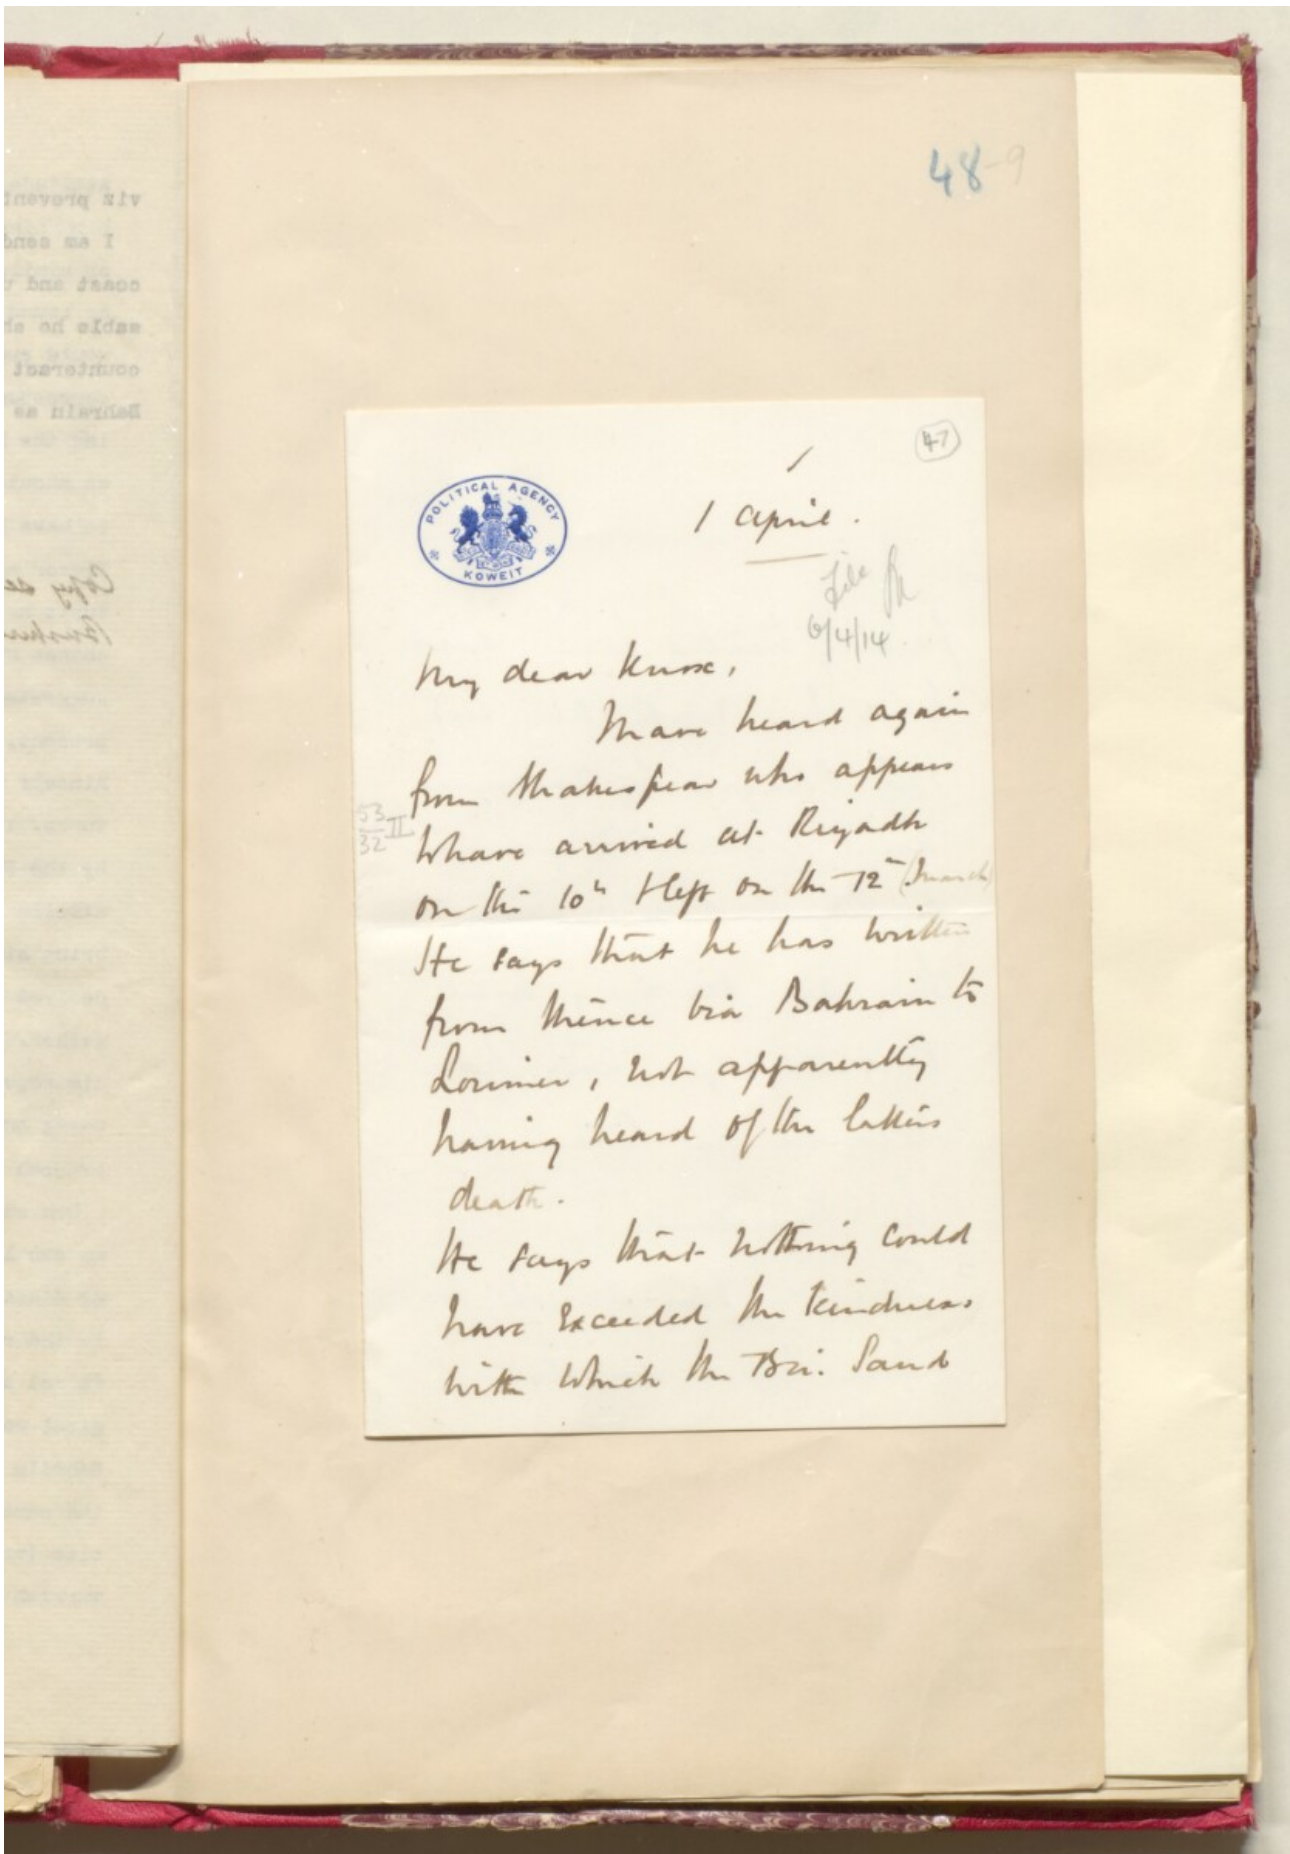 48-9
47
POLITICAL AGENCY
KOWEIT
1 April.
File
6/4/14
My dear Knox,
I have heard again
from Shakespear who appears
53/32 II
to have arrived at Riyadh
on the 10th & left on the 12th (March)
He says that he has written
from thence via Bahrain to
Lorimer, not apparently
having heard of the latters
death.
He says that nothing could
have exceeded the kindness
with which the Bin Saud
viz prevent
I am send
coast and
sable he sh
counteract
Bahrain as
Copy